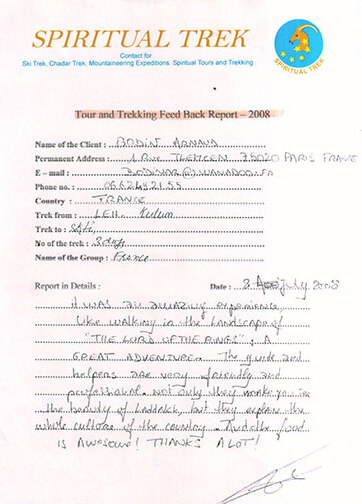 SPIRITUAL TREK
Contact for
Ski Trek, Chadar Trek, Mountaineering Expeditions, Spiritual Tours and Trekking
SPIRITUAL TREK
Tour and Trekking Feed Back Report – 2008
Name of the Client : BODIN
Permanent Address : 1 Rue TLEMCEN 75020 PARIS FRANCE
E – mail :
Phone no. :
Country : FRANCE
Trek from : LEH
Trek to :
No of the trek : 3 days
Name of the Group : France
Report in Details : Date : July 2008
it was an amazing experience,
like walking in the landscape of
"THE LORD OF THE RINGS", A
GREAT ADVENTURE. The guide and
helpers are very friendly and
professional. not only they make you in
the beauty of Laddack, but they explain the
whole culture of the country. food
is AWESOME! THANKS A LOT!